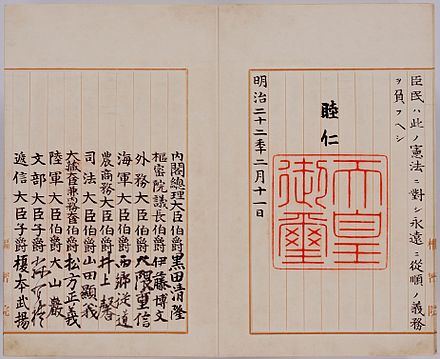 臣民ハ此ノ憲法ニ對シ永遠ニ從順ノ義務
ヲ負フヘシ
睦仁
天皇御璽
明治二十二年二月十一日
內閣總理大臣伯爵黒田清隆
樞密院議長伯爵伊藤博文
外務大臣伯爵大隈重信
海軍大臣伯爵西郷從道
農商務大臣伯爵井上馨
司法大臣伯爵山田顯義
大藏大臣兼內務大臣伯爵松方正義
陸軍大臣伯爵大山巖
文部大臣子爵森有禮
遞信大臣子爵榎本武揚
樞密院
樞密院